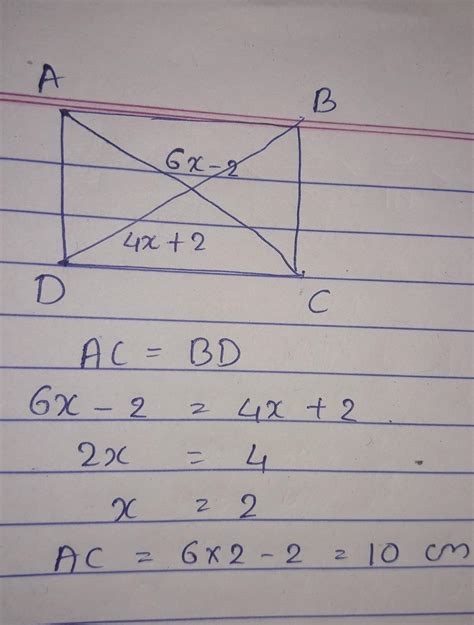 A
B
6x-2
4x+2
D
C
AC = BD
6x - 2 = 4x + 2
2x = 4
x = 2
AC = 6×2-2 = 10 cm